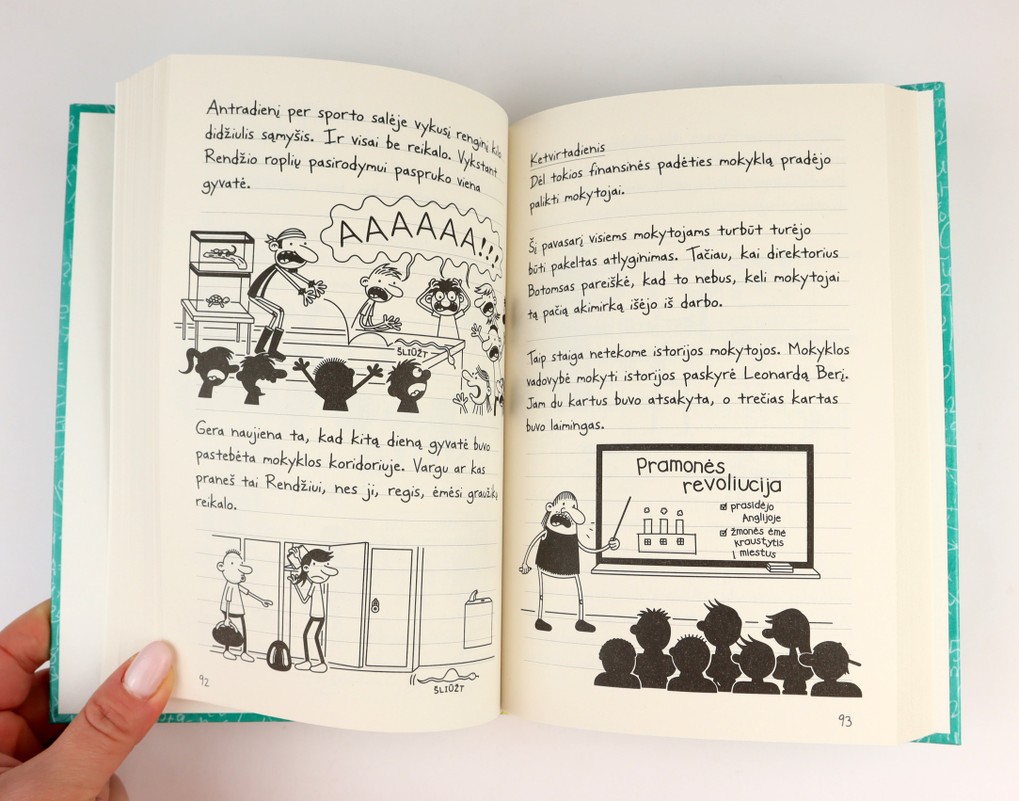 Antradienį per sporto salėje vykusį renginį kilo
didžiulis sąmyšis. Ir visai be reikalo. Vykstant
Rendžio roplių pasirodymui paspruko viena
gyvatė.
AAAAAA!!!
ŠLIŪŽT
Gera naujiena ta, kad kitą dieną gyvatė buvo
pastebėta mokyklos koridoriuje. Vargu ar kas
praneš tai Rendžiui, nes ji, regis, ėmėsi graužikų
reikalo.
ŠLIŪŽT
92
Ketvirtadienis
Dėl tokios finansinės padėties mokyklą pradėjo
palikti mokytojai.
Šį pavasarį visiems mokytojams turbūt turėjo
būti pakeltas atlyginimas. Tačiau, kai direktorius
Botomsas pareiškė, kad to nebus, keli mokytojai
tą pačią akimirką išėjo iš darbo.
Taip staiga netekome istorijos mokytojos. Mokyklos
vadovybė mokyti istorijos paskyrė Leonardą Berį.
Jam du kartus buvo atsakyta, o trečias kartas
buvo laimingas.
Pramonės
revoliucija
prasidėjo
Anglijoje
žmonės ėmė
kraustytis
į miestus
93